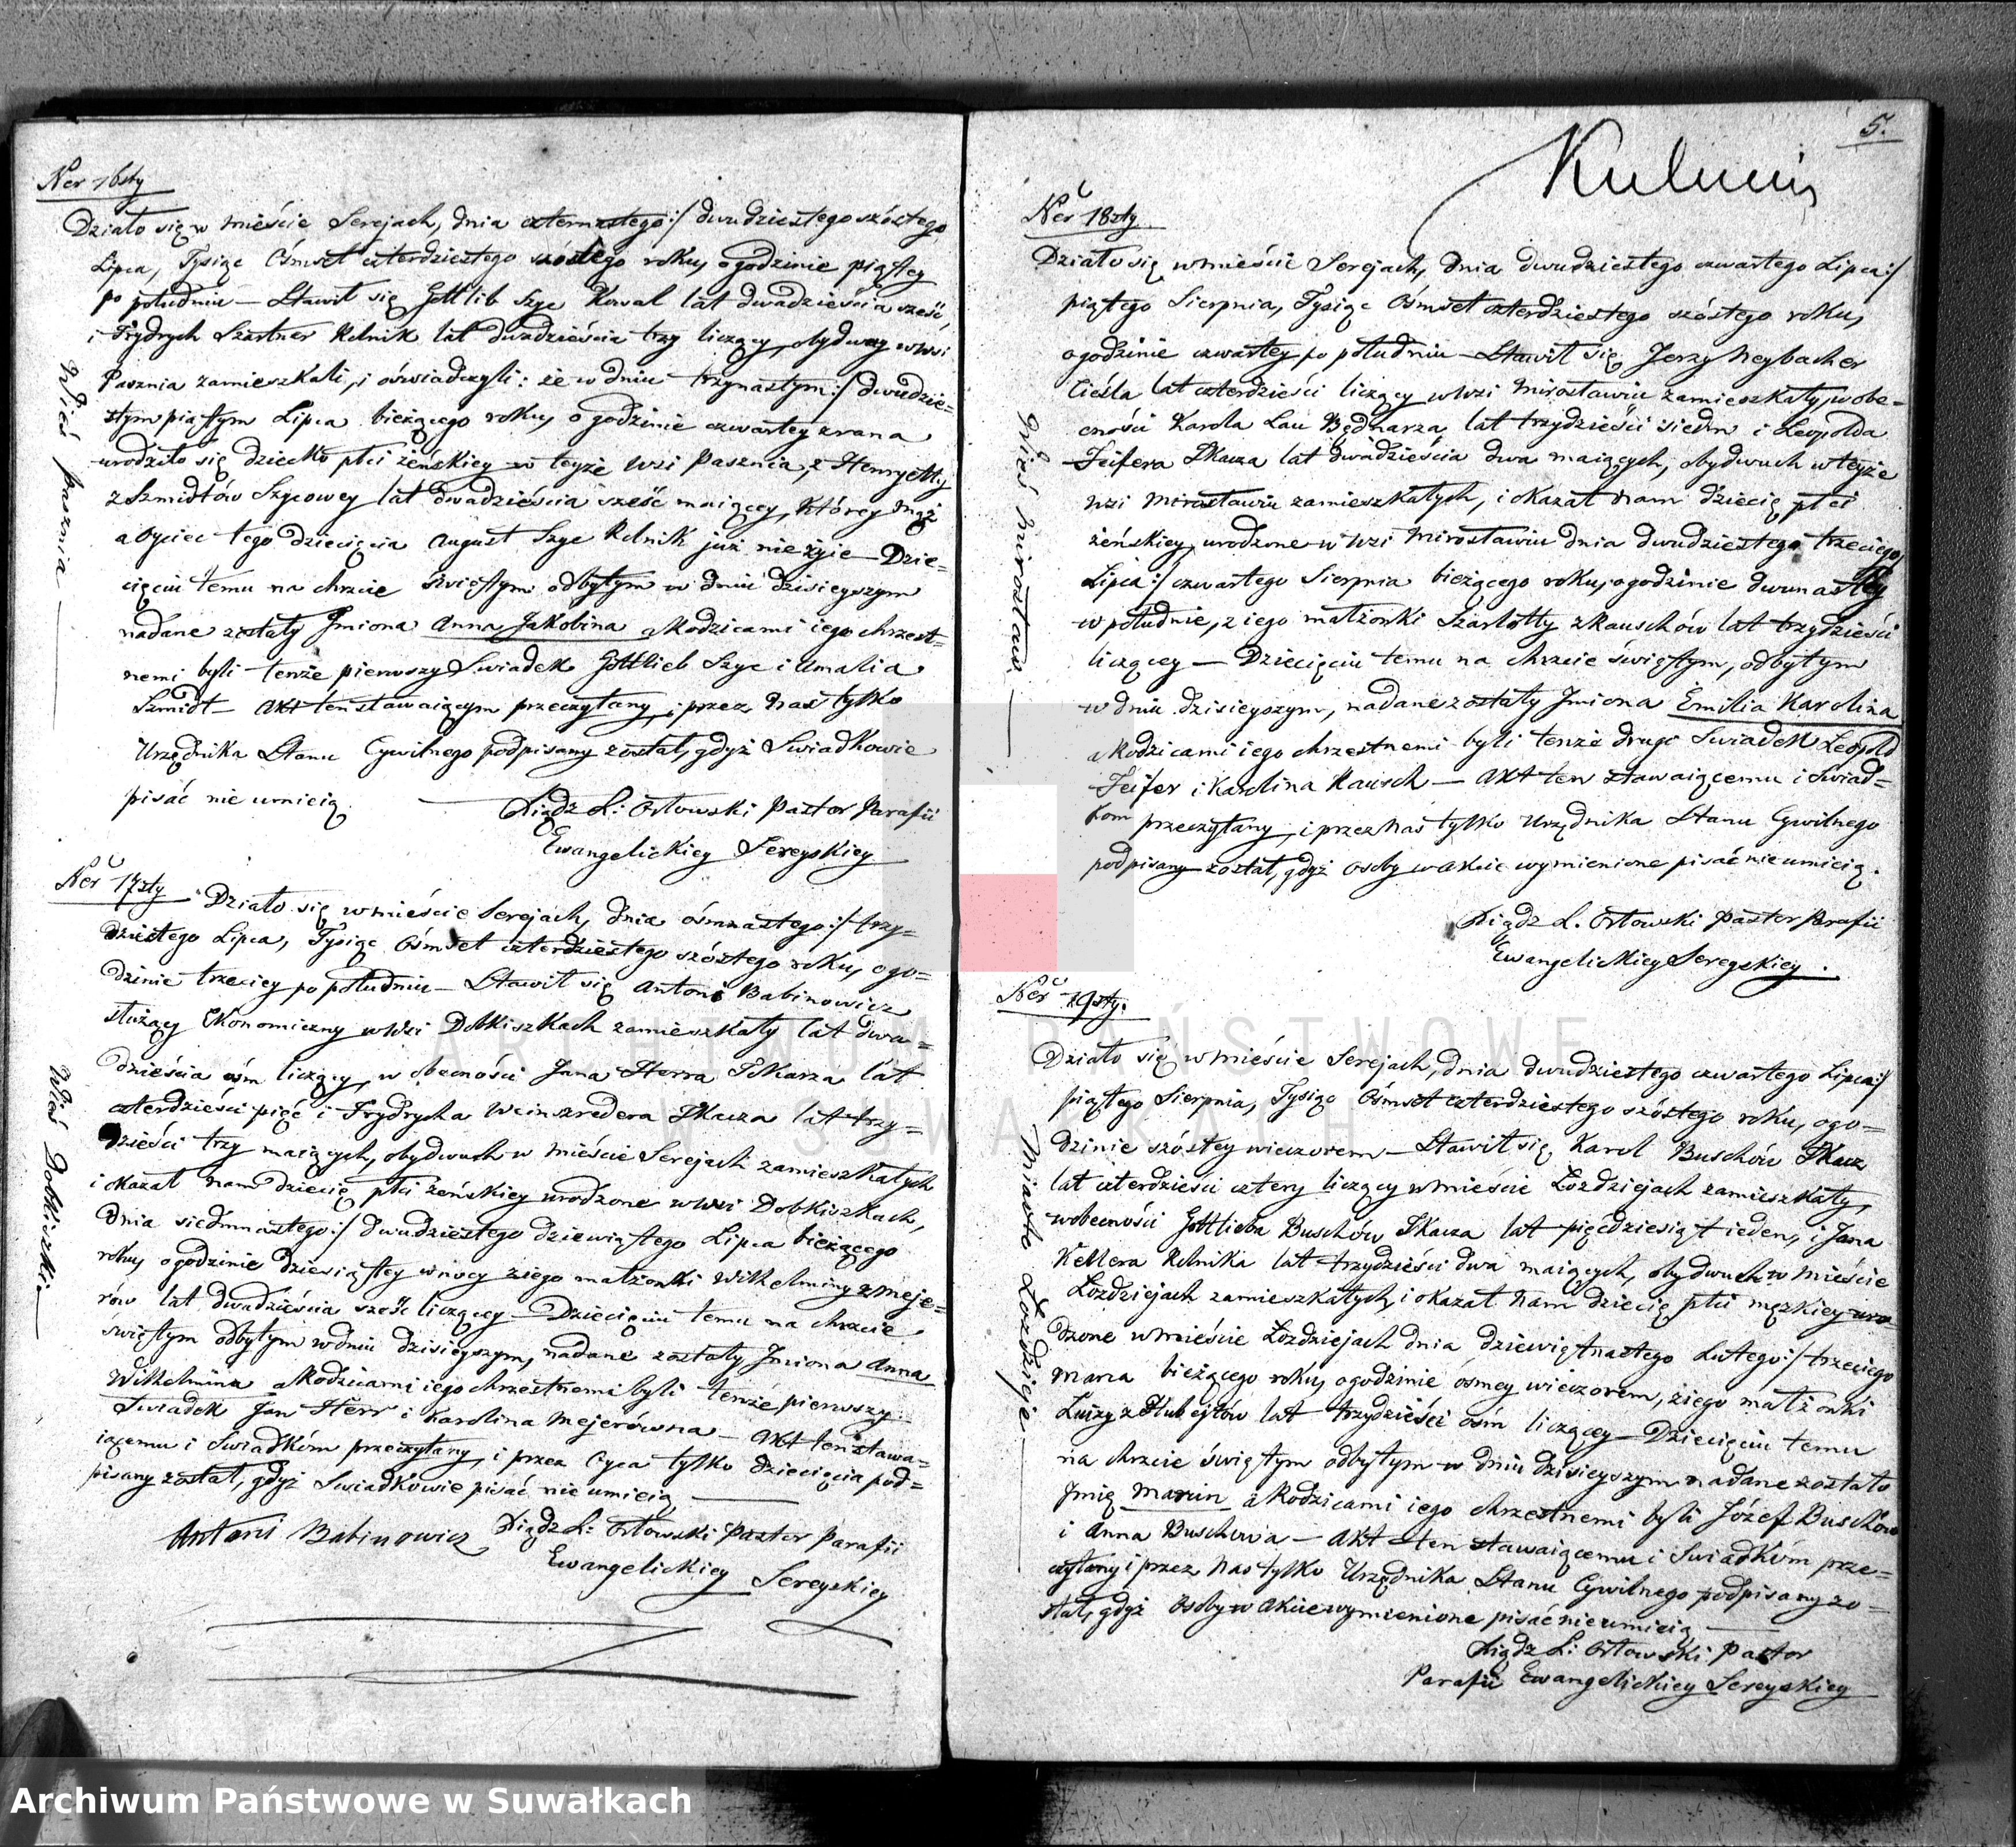 Ner 16sty
Działo się w mieście Serejach, dnia czternastego :/ dwudziestego szóstego
Lipca, Tysiąc Ośmset czterdziestego szóstego roku, o godzinie piątey
po południu — Stawił się Gottlib Szyc Kowal lat dwadzieścia sześć,
i Frydrych Szartner Rolnik lat dwadzieścia trzy liczący, obydway w wsi
Pasznia zamieszkali, i oświadczyli: że w dniu trzynastym :/ dwudzie=
stym piątym Lipca bieżącego roku, o godzinie czwartey zrana
urodziło się dziecko płci żeńskiey w teyże wsi Pasznia, z Henryetty
z Szmidtów Szycowey lat dwadzieścia sześć maiącey, którey mąż
a oyciec tego dziecięcia August Szyc Rolnik już nie żyie — Dzie=
cięciu temu na chrzcie świętym odbytym w dniu dzisieyszym
nadane zostały Jmiona Anna Jakobina a Rodzicami iego chrzest=
nemi byli tenże pierwszy Swiadek Gottlieb Szyc i Amalia
Szmidt — Akt ten stawaiącym przeczytany, i przez Nas tylko
Urzędnika Stanu Cywilnego podpisany został, gdyż Swiadkowie
pisać nie umieią. — Xiądz L: Orłowski Pastor Parafii
Ewangelickiey Sereyskiey
Wieś Pasznia
Ner 17sty
Działo się w mieście Serejach, dnia ośmnastego :/ trzy=
dziestego Lipca, Tysiąc Ośmset czterdziestego szóstego roku, ogo=
dzinie trzeciey po południu — Stawił się Antoni Babinowicz
służący Ekonomiczny w wsi Dobkiszkach zamieszkały lat dwa=
dzieścia ośm liczący, w obecności Jana Herra Tokarza lat
czterdzieści pięć i Frydrycha Weinszredera Tkacza lat trzy=
dzieści trzy maiących, obydwuch w mieście Serejach zamieszkałych
i okazał nam dziecię płci żeńskiey urodzone w wsi Dobkiszkach,
dnia siedmnastego :/ dwudziestego dziewiątego Lipca bieżącego
roku, o godzinie dziewiątey w nocy z iego małżonki Wilhelminy z Meje=
rów lat dwadzieścia sześć liczącey — Dziecięciu temu na chrzcie
świętym odbytym w dniu dzisieyszym, nadane zostały Jmiona Anna
Wilhelmina a Rodzicami iego chrzestnemi byli tenże pierwszy
Swiadek Jan Herr i Karolina Mejerówna — Akt ten stawa=
iącemu i Swiadkóm przeczytany, i przez Oyca tylko dziecięcia pod=
pisany został, gdyż Swiadkowie pisać nie umieią —
Antoni Babinowicz Xiądz L: Orłowski Pastor Parafii
Ewangelickiey Sereyskiey
Wieś Dobkiszki
5.
Ner 18sty
Działo się w mieście Serejach, dnia dwudziestego czwartego Lipca :/
piątego Sierpnia, Tysiąc Ośmset czterdziestego szóstego roku,
o godzinie czwartey po południu — Stawił się Jerzy Neybacher
Cieśla lat czterdzieści liczący w wsi Mirosławiu zamieszkały, w obe=
cności Karola Lau Bednarza lat trzydzieści siedm i Leopolda
Feifera Tkacza lat dwadzieścia dwa maiących, obydwuch w teyże
wsi Mirosławiu zamieszkałych, i okazał nam dziecię płci
żeńskiey, urodzone w wsi Mirosławiu dnia dwudziestego trzeciego
Lipca :/ czwartego Sierpnia bieżącego roku, o godzinie dwunastey
w południe, z iego małżonki Szarlotty z Rauschów lat trzydzieści
liczącey — Dziecięciu temu na chrzcie świętym, odbytym
w dniu dzisieyszym, nadane zostały Jmiona Emilia Karolina
a Rodzicami iego chrzestnemi byli tenże drugi Swiadek Leopold
Feifer i Karolina Rausch — Akt ten stawaiącemu i Swiad=
kom przeczytany, i przez Nas tylko Urzędnika Stanu Cywilnego
podpisany został, gdyż osoby w akcie wymienione pisać nie umieią.
Xiądz L. Orłowski Pastor Parafii
Ewangelickiey Sereyskiey.
Wieś Mirosław
Ner 19sty.
Działo się w mieście Serejach, dnia dwudziestego czwartego Lipca :/
piątego Sierpnia, Tysiąc Ośmset czterdziestego szóstego roku, ogo=
dzinie szóstey wieczorem — Stawił się Karol Buschów Tkacz
lat czterdzieści cztery liczący w mieście Łoździejach zamieszkały,
w obecności Gottlieba Buschów Tkacza lat pięćdziesiąt ieden, i Jana
Kellera Rolnika lat trzydzieści dwa maiących, obydwuch w mieście
Łoździejach zamieszkałych, i okazał Nam dziecię płci męzkiey uro
dzone w mieście Łoździejach dnia dziewiętnastego Lutego :/ trzeciego
Marca bieżącego roku, o godzinie ósmey wieczorem, z iego małżonki
Luizy z lat trzydzieści ośm liczącey — Dziecięciu temu
na chrzcie świętym odbytym w dniu dzisieyszym nadane zostało
Jmię Marcin a Rodzicami iego chrzestnemi byli Józef Buschów
i Anna Buschowa — Akt ten stawaiącemu i Swiadkóm prze=
czytany i przez Nas tylko Urzędnika Stanu Cywilnego podpisany zo=
stał, gdyż osoby w akcie wymienione pisać nie umieią —
Xiądz L: Orłowski Pastor
Parafii Ewangelickiey Sereyskiey
Miasto Łoździeje
ARCHIWUM PAŃSTWOWE
W SUWAŁKACH
Archiwum Państwowe w Suwałkach